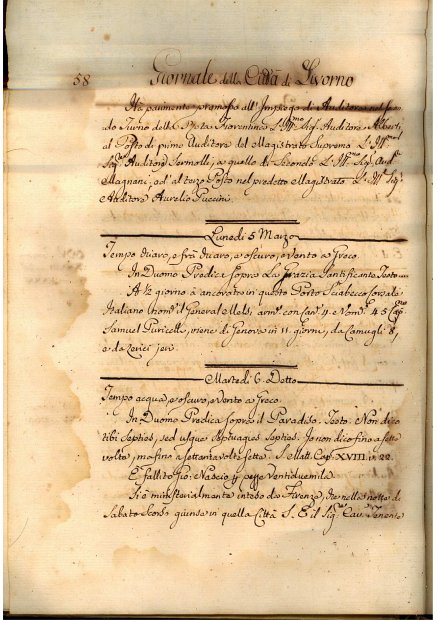 58 Giornale della Città di Livorno
Ha parimente promosso all'Impiego di Auditore nel secon
do Turno della Rota Fiorentina L'Ill.mo Sig. Auditore Alberti
al Posto di primo Auditore del Magistrato Supremo L'Ill.mo
Sig. Auditore Vernolli, a quello di Secondo L'Ill.mo Sig. Aud.
Magnani; ed al terzo Posto nel predetto Magistrato L'Ill.mo Sig.
Auditore Aurelio Puccini.
Lunedì 5 Marzo
Tempo chiaro, e frà chiaro, e oscuro, e vento a Greco.
In Duomo Predica sopra La Grazia Santificante. Testo
A ½ giorno à ancorato in questo Porto Sciabecco Corsale
Italiano nom. il General Mells, arm. con Can. 4 e Nom. 45 Cap.
Samuel Puricelli, viene di Genova in 11 giorni, da Camugli 8,
e da Lerici jeri.
Martedì 6. Detto
Tempo acqua, e oscuro, e vento a Greco.
In Duomo Predica sopra il Paradiso. Testo. Non dico
tibi septies, sed usque septuages septies. Io non dico fino a sette
volte, ma fino a settanta volte sette. S. Matt. Cap. XVIII v. 22.
E fallito Gio: Nascio p. pezze ventiduemila.
Si è ministerialmente inteso da Firenze, che nella notte di
Sabato Scorso giunse in quella Città S. E. il Sig. Cav. Tenente